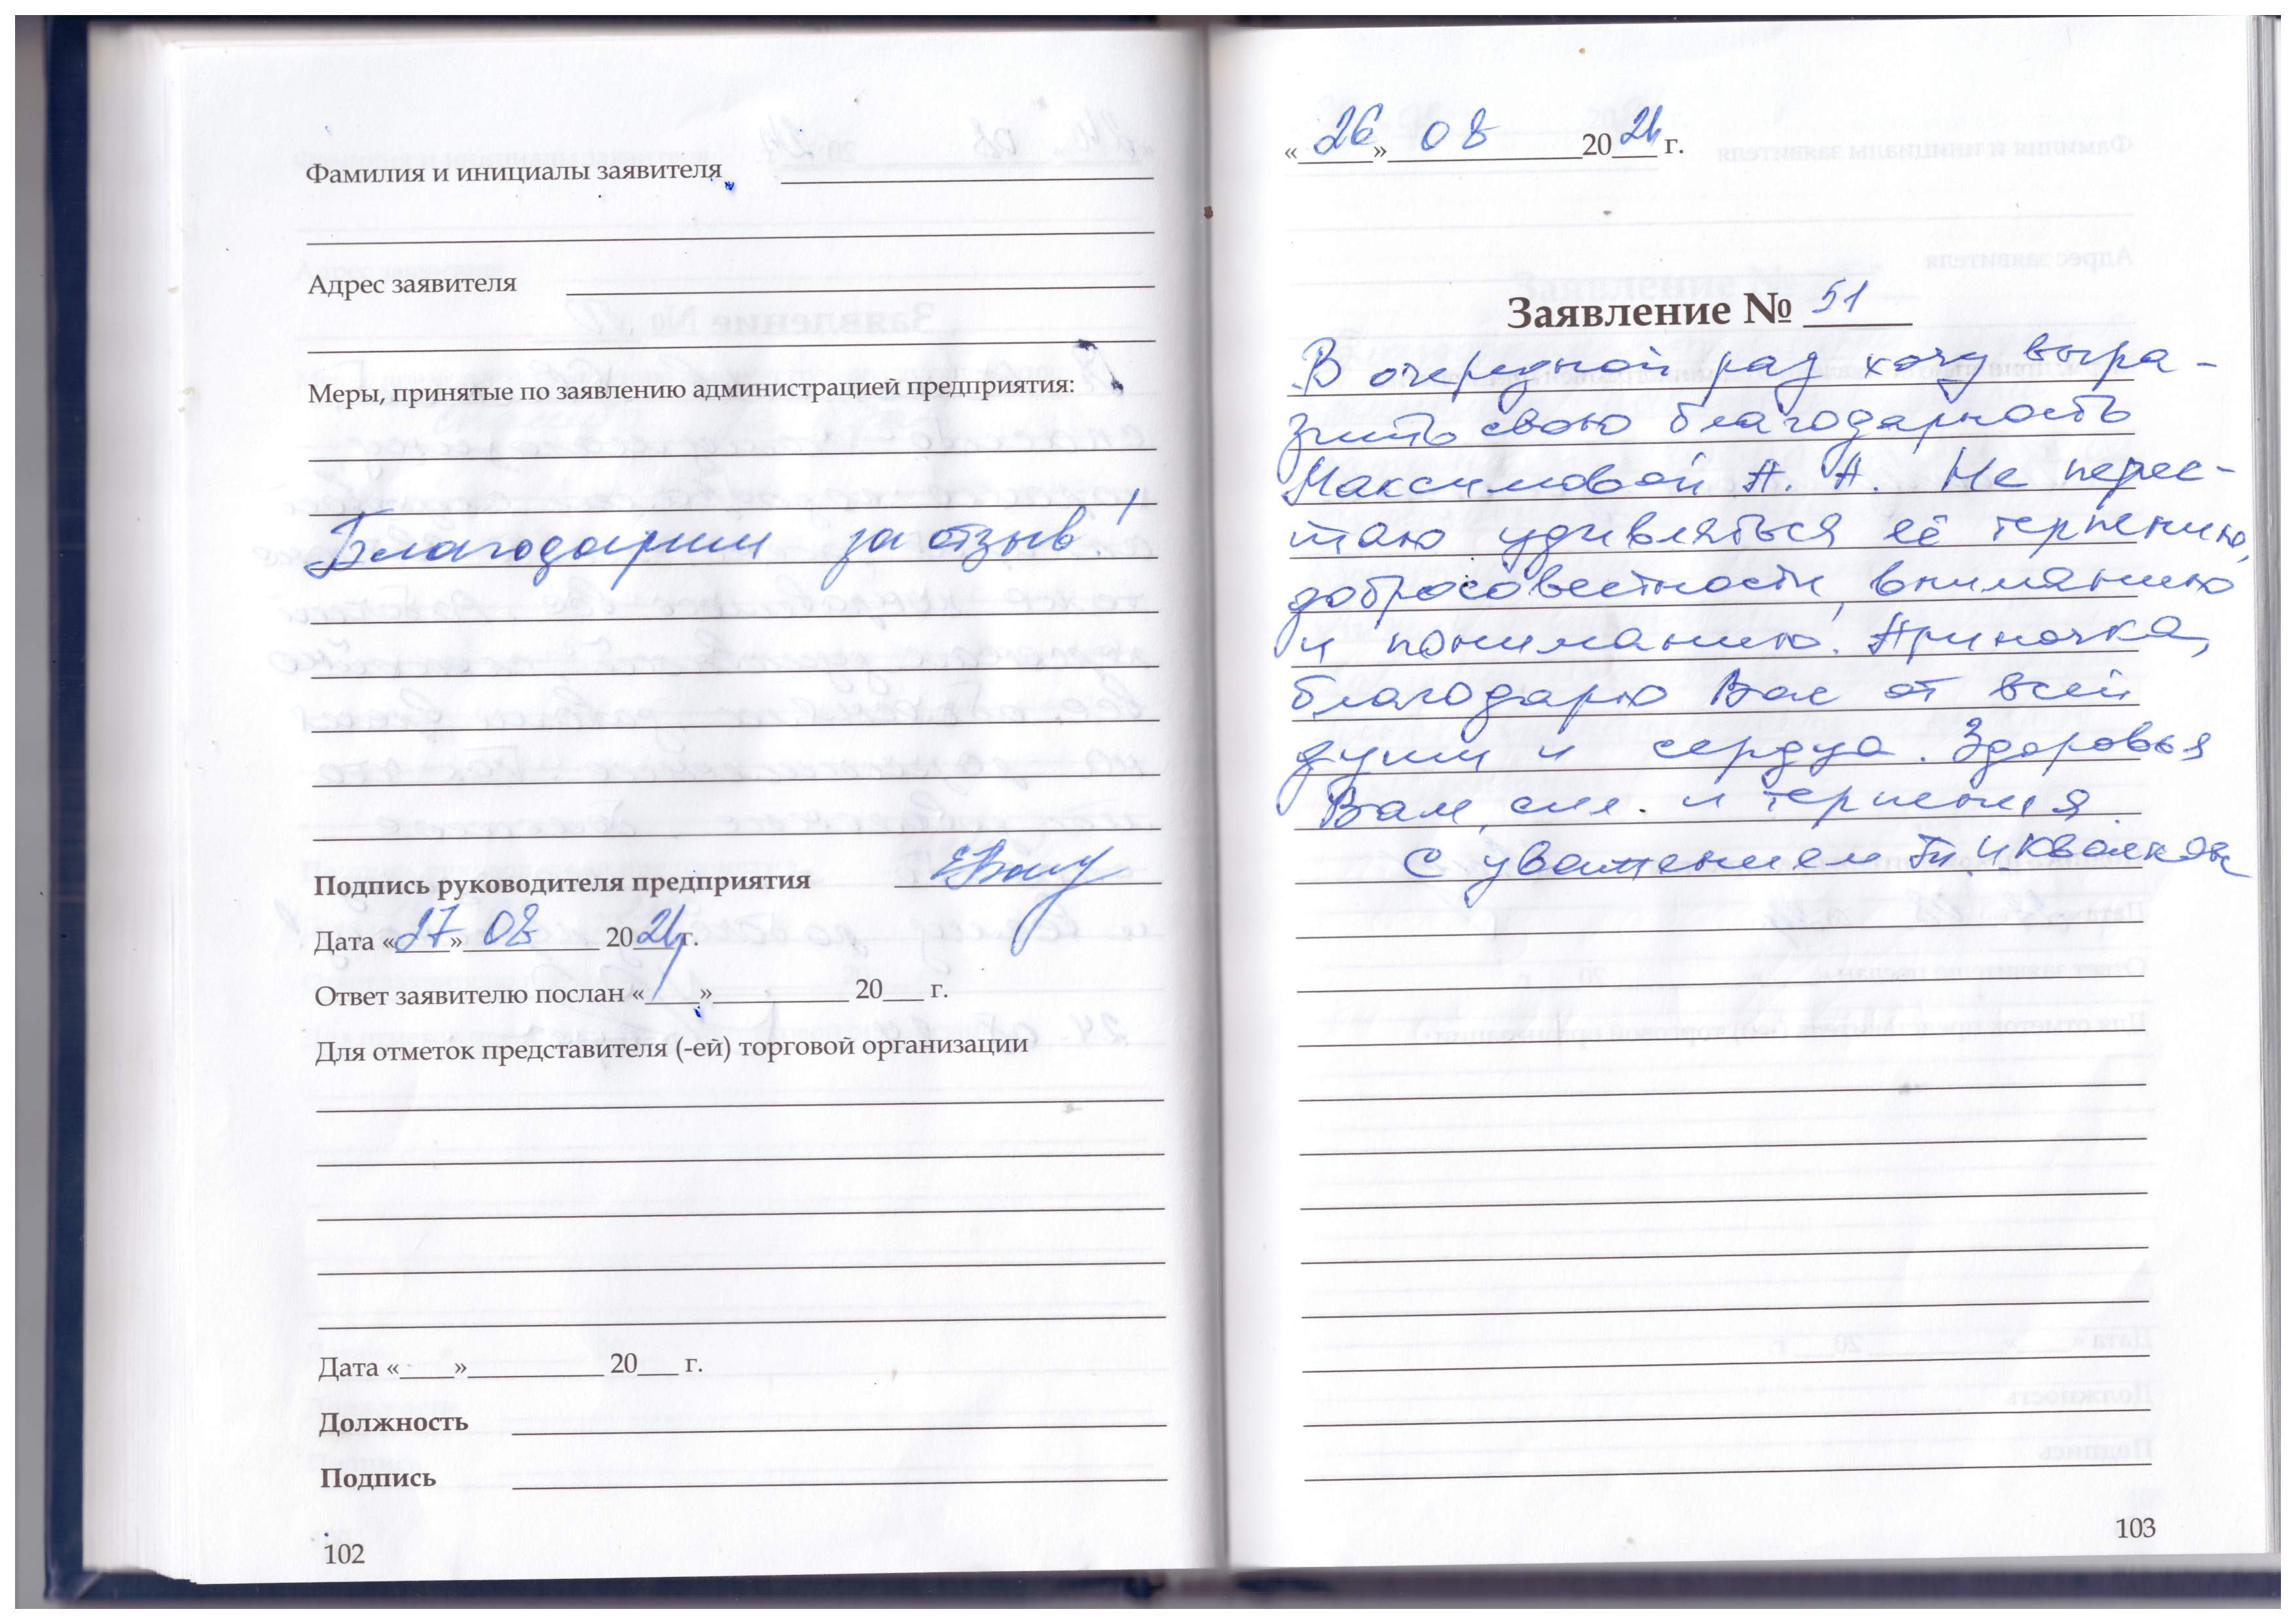 Фамилия и инициалы заявителя
Адрес заявителя
Меры, принятые по заявлению администрацией предприятия:
Благодарим за отзыв!
Подпись руководителя предприятия
Дата «27» 08 2024 г.
Ответ заявителю послан «____»__________ 20___ г.
Для отметок представителя (-ей) торговой организации
Дата «____»__________ 20___ г.
Должность
Подпись
102
«26» 08 2024 г.
Заявление № 51
В очередной раз хочу выра-
зить свою благодарность
Максимовой А. А. Не перес-
таю удивляться её терпению,
добросовестности, вниманию
и пониманию. Ариночка,
благодарю Вас от всей
души и сердца. Здоровья
Вам, сил. и терпения.
С уважением
103